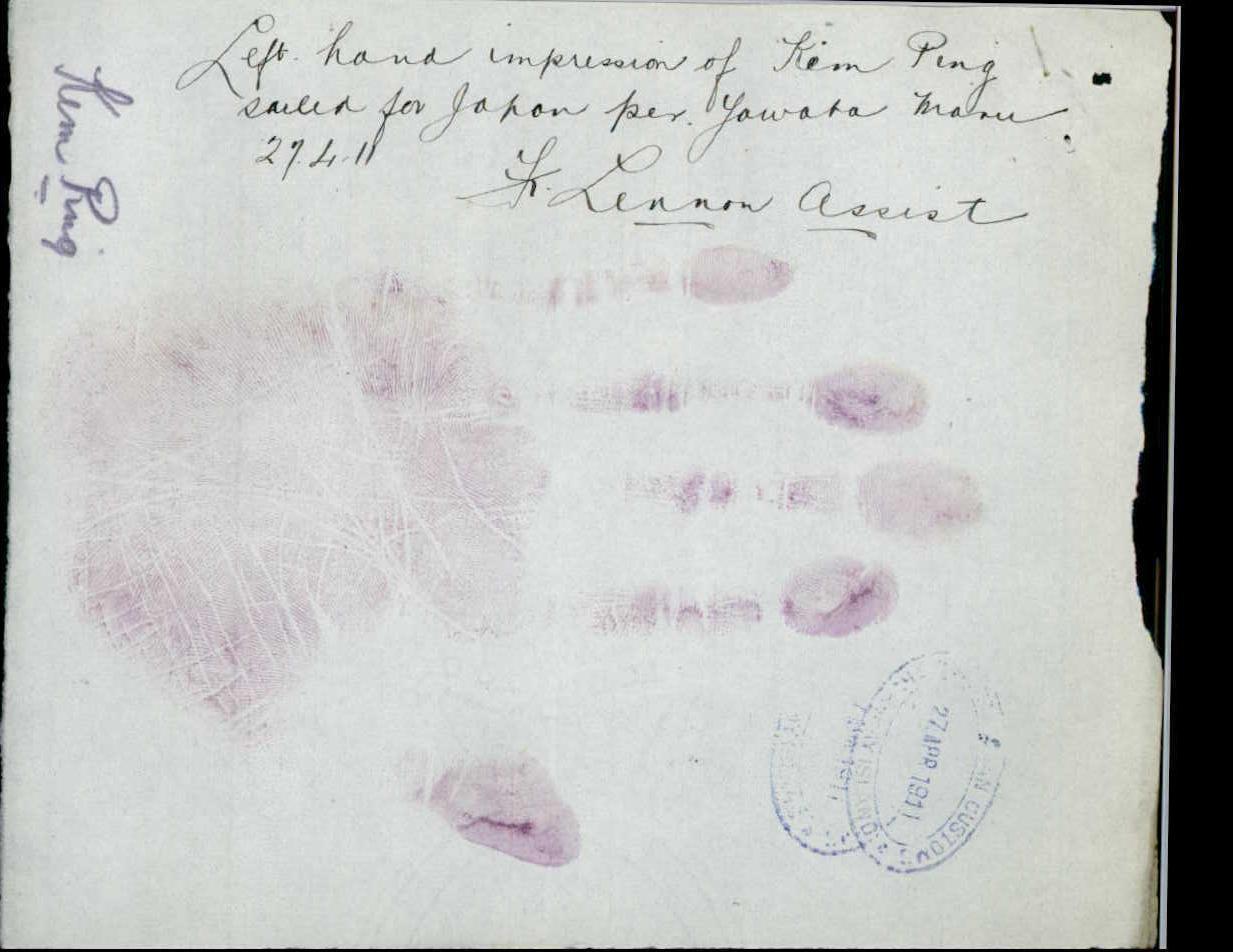 Left hand impression of Kem Ping
sailed for Japan per. Yawata Maru
27.4.11
F. Lennon Assist
Kem Ping
27 APR 1911
CUSTOM